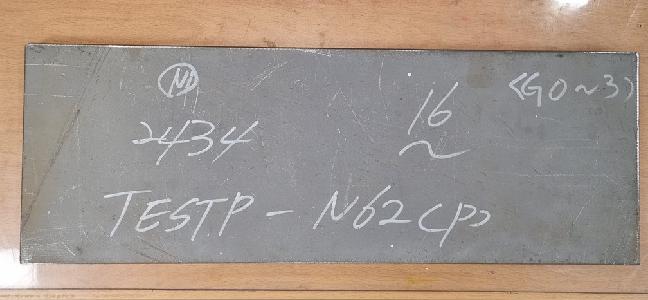 ND
2434 16 ~ (G0~3)
TESTP-N62(P)